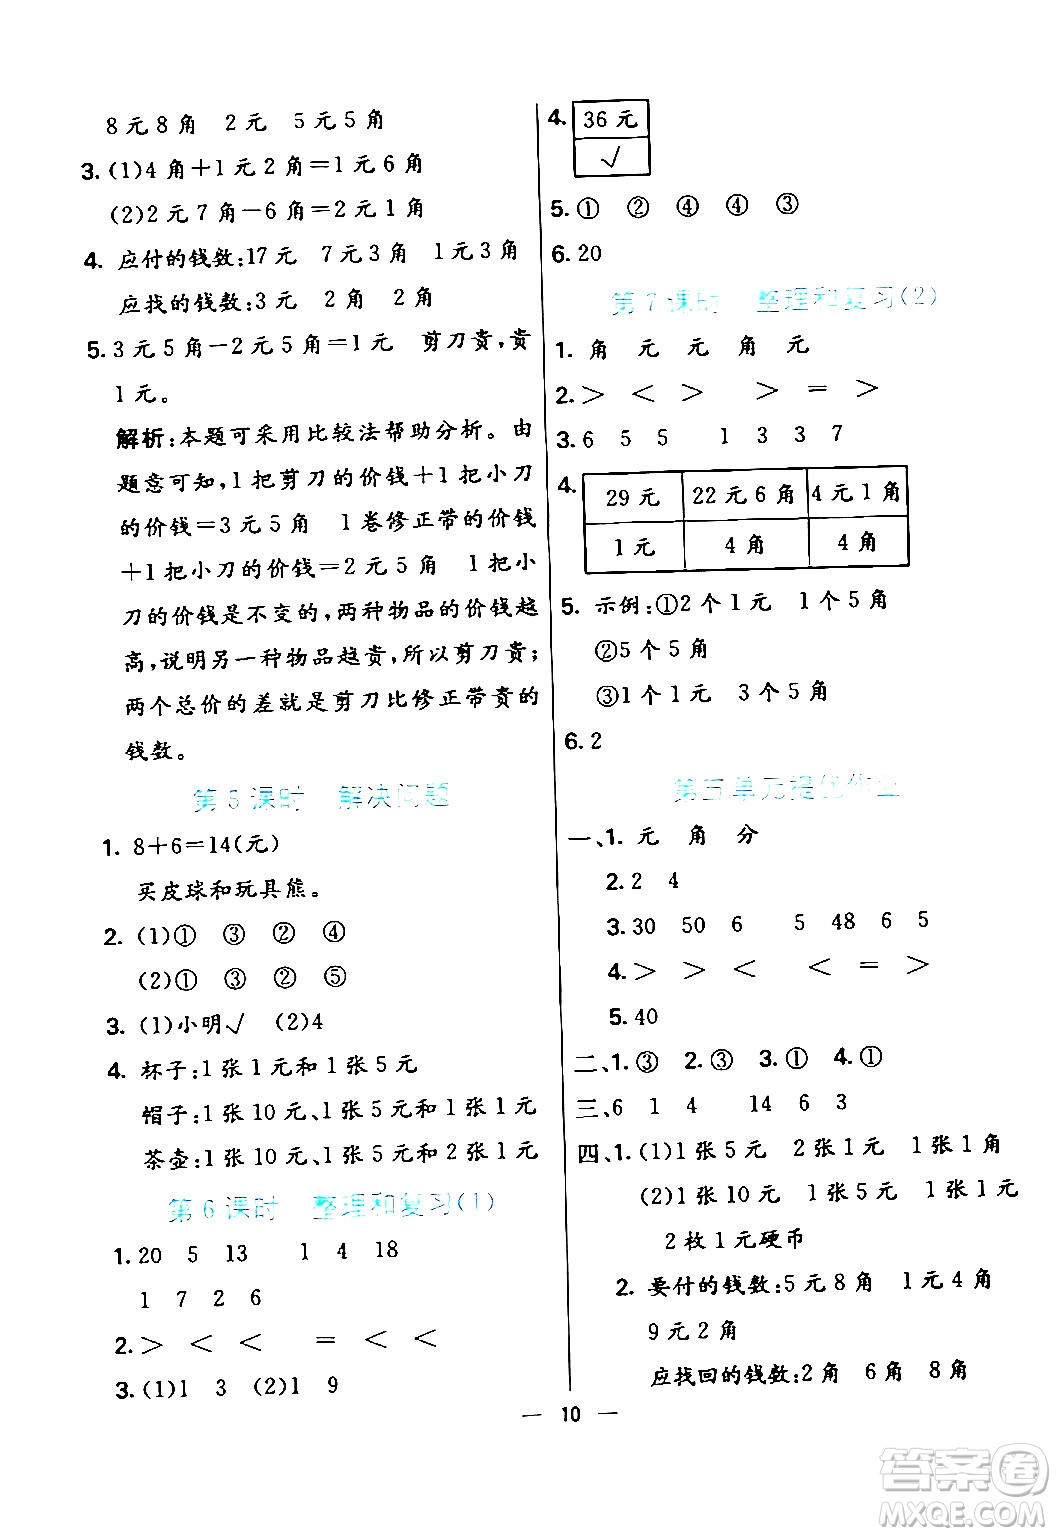 8元8角 2元 5元5角
3. (1)4角＋1元2角＝1元6角
(2)2元7角－6角＝2元1角
4. 应付的钱数:17元 7元3角 4元3角
应找的钱数:3元 2角 2角
5. 3元5角－2元5角＝1元 剪刀贵,贵
1元。
解析:本题可采用比较法帮助分析。由
题意可知,1把剪刀的价钱＋1把小刀
的价钱＝3元5角 1卷修正带的价钱
＋1把小刀的价钱＝2元5角 1把小
刀的价钱是不变的,两种物品的价钱越
高,说明另一种物品越贵,所以剪刀贵;
两个总价的差就是剪刀比修正带贵的
钱数。
第5课时 解决问题
1. 8＋6＝14(元)
买皮球和玩具熊。
2. (1)① ③ ② ④
(2)① ③ ② ⑤
3. (1)小明√ (2)4
4. 杯子:1张1元和1张5元
帽子:1张10元、1张5元和1张1元
茶壶:1张10元、1张5元和1张1元
第6课时 整理和复习(1)
1. 20 5 13 1 4 18
1 7 2 6
2. ＞ ＜ ＜ ＝ ＜ ＜
3. (1)1 3 (2)1 9
4. 36元
√
5. ① ② ④ ④ ③
6. 20
第7课时 整理和复习(2)
1. 角 元 元 角 元
2. ＞ ＜ ＞ ＞ ＝ ＞
3. 6 5 5 1 3 3 7
4. 29元 22元6角 4元1角
1元 4角 4角
5. 示例:①2个1元 1个5角
②5个5角
③1个1元 3个5角
6. 2
第五单元提优作业
一、1. 元 角 分
2. 2 4
3. 30 50 6 5 48 6 5
4. ＞ ＞ ＜ ＜ ＝ ＞
5. 40
二、1. ③ 2. ③ 3. ① 4. ①
三、6 1 4 14 6 3
四、1. (1)1张5元 2张1元 1张1角
(2)1张10元 1张5元 1张1元
2枚1元硬币
2. 要付的钱数:5元8角 1元4角
9元2角
应找回的钱数:2角 6角 8角
— 10 —
答案圈
MXQE.COM